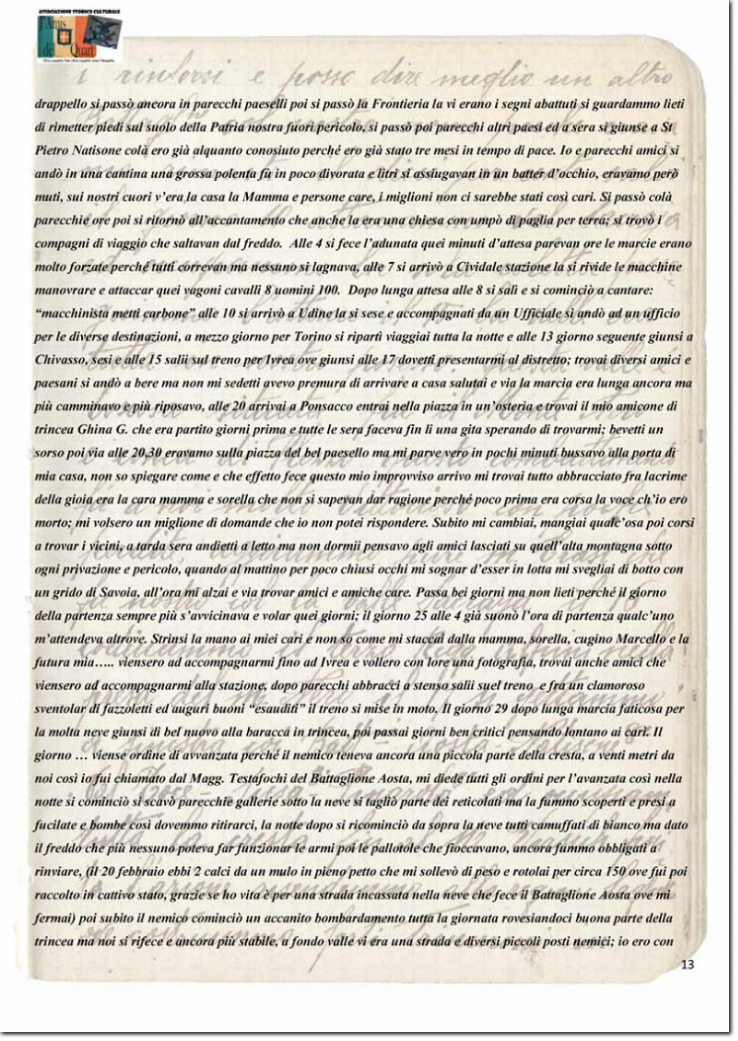 ASSOCIAZIONE STORICO CULTURALE
l'Amis
del Quart
i rinforzi e posso dire meglio un altro
drappello si passò ancora in parecchi paeselli poi si passò la Frontieria la vi erano i segni abattuti si guardammo lieti
di rimetter piedi sul suolo della Patria nostra fuori pericolo, si passò poi parecchi altri paesi ed a sera si giunse a St
Pietro Natisone colà ero già alquanto conosiuto perché ero già stato tre mesi in tempo di pace. Io e parecchi amici si
andò in una cantina una grossa polenta fù in poco divorata e litri si assiugavan in un batter d'occhio, eravamo però
muti, sui nostri cuori v'era la casa la Mamma e persone care, i miglioni non ci sarebbe stati così cari. Si passò colà
parecchie ore poi si ritornò all'accantamento che anche la era una chiesa con umpò di paglia per terra; si trovò i
compagni di viaggio che saltavan dal freddo. Alle 4 si fece l'adunata quei minuti d'attesa parevan ore le marcie erano
molto forzate perché tutti correvan ma nessuno si lagnava, alle 7 si arrivò a Cividale stazione la si rivide le macchine
manovrare e attaccar quei vagoni cavalli 8 uomini 100. Dopo lunga attesa alle 8 si salì e si cominciò a cantare:
“macchinista metti carbone” alle 10 si arrivò a Udine la si sese e accompagnati da un Ufficiale si andò ad un ufficio
per le diverse destinazioni, a mezzo giorno per Torino si ripartì viaggiai tutta la notte e alle 13 giorno seguente giunsi a
Chivasso, sesi e alle 15 salii sul treno per Ivrea ove giunsi alle 17 dovetti presentarmi al distretto; trovai diversi amici e
paesani si andò a bere ma non mi sedetti avevo premura di arrivare a casa salutai e via la marcia era lunga ancora ma
più camminavo e più riposavo, alle 20 arrivai a Ponsacco entrai nella piazza in un'osteria e trovai il mio amicone di
trincea Ghina G. che era partito giorni prima e tutte le sera faceva fin lì una gita sperando di trovarmi; bevetti un
sorso poi via alle 20,30 eravamo sulla piazza del bel paesello ma mi parve vero in pochi minuti bussavo alla porta di
mia casa, non so spiegare come e che effetto fece questo mio improvviso arrivo mi trovai tutto abbracciato fra lacrime
della gioia era la cara mamma e sorella che non si sapevan dar ragione perché poco prima era corsa la voce ch'io ero
morto; mi volsero un miglione di domande che io non potei rispondere. Subito mi cambiai, mangiai qualc'osa poi corsi
a trovar i vicini, a tarda sera andietti a letto ma non dormii pensavo agli amici lasciati su quell'alta montagna sotto
ogni privazione e pericolo, quando al mattino per poco chiusi occhi mi sognar d'esser in lotta mi svegliai di botto con
un grido di Savoia, all'ora mi alzai e via trovar amici e amiche care. Passa bei giorni ma non lieti perché il giorno
della partenza sempre più s'avvicinava e volar quei giorni; il giorno 25 alle 4 già suonò l'ora di partenza qualc'uno
m'attendeva altrove. Strinsi la mano ai miei cari e non so come mi staccai dalla mamma, sorella, cugino Marcello e la
futura mia….. viensero ad accompagnarmi fino ad Ivrea e vollero con lore una fotografia, trovai anche amici che
viensero ad accompagnarmi alla stazione, dopo parecchi abbracci a stenso salii suel treno e fra un clamoroso
sventolar di fazzoletti ed auguri buoni “esauditi” il treno si mise in moto. Il giorno 29 dopo lunga marcia faticosa per
la molta neve giunsi di bel nuovo alla baracca in trincea, poi passai giorni ben critici pensando lontano ai cari. Il
giorno … viense ordine di avvanzata perché il nemico teneva ancora una piccola parte della cresta, a venti metri da
noi così io fui chiamato dal Magg. Testafochi del Battaglione Aosta, mi diede tutti gli ordini per l'avanzata così nella
notte si cominciò si scavò parecchie gallerie sotto la neve si tagliò parte dei reticolati ma la fummo scoperti e presi a
fucilate e bombe così dovemmo ritirarci, la notte dopo si ricominciò da sopra la neve tutti camuffati di bianco ma dato
il freddo che più nessuno poteva far funzionar le armi poi le pallotole che fioccavano, ancora fummo obbligati a
rinviare, (il 20 febbraio ebbi 2 calci da un mulo in pieno petto che mi sollevò di peso e rotolai per circa 150 ove fui poi
raccolto in cattivo stato, grazie se ho vita è per una strada incassata nella neve che fece il Battaglione Aosta ove mi
fermai) poi subito il nemico cominciò un accanito bombardamento tutta la giornata rovesiandoci buona parte della
trincea ma noi si rifece e ancora più stabile, a fondo valle vi era una strada e diversi piccoli posti nemici; io ero con
13